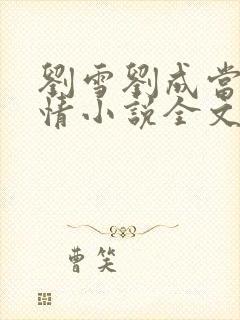 劉雪劉成當
情小說全文
曹笑